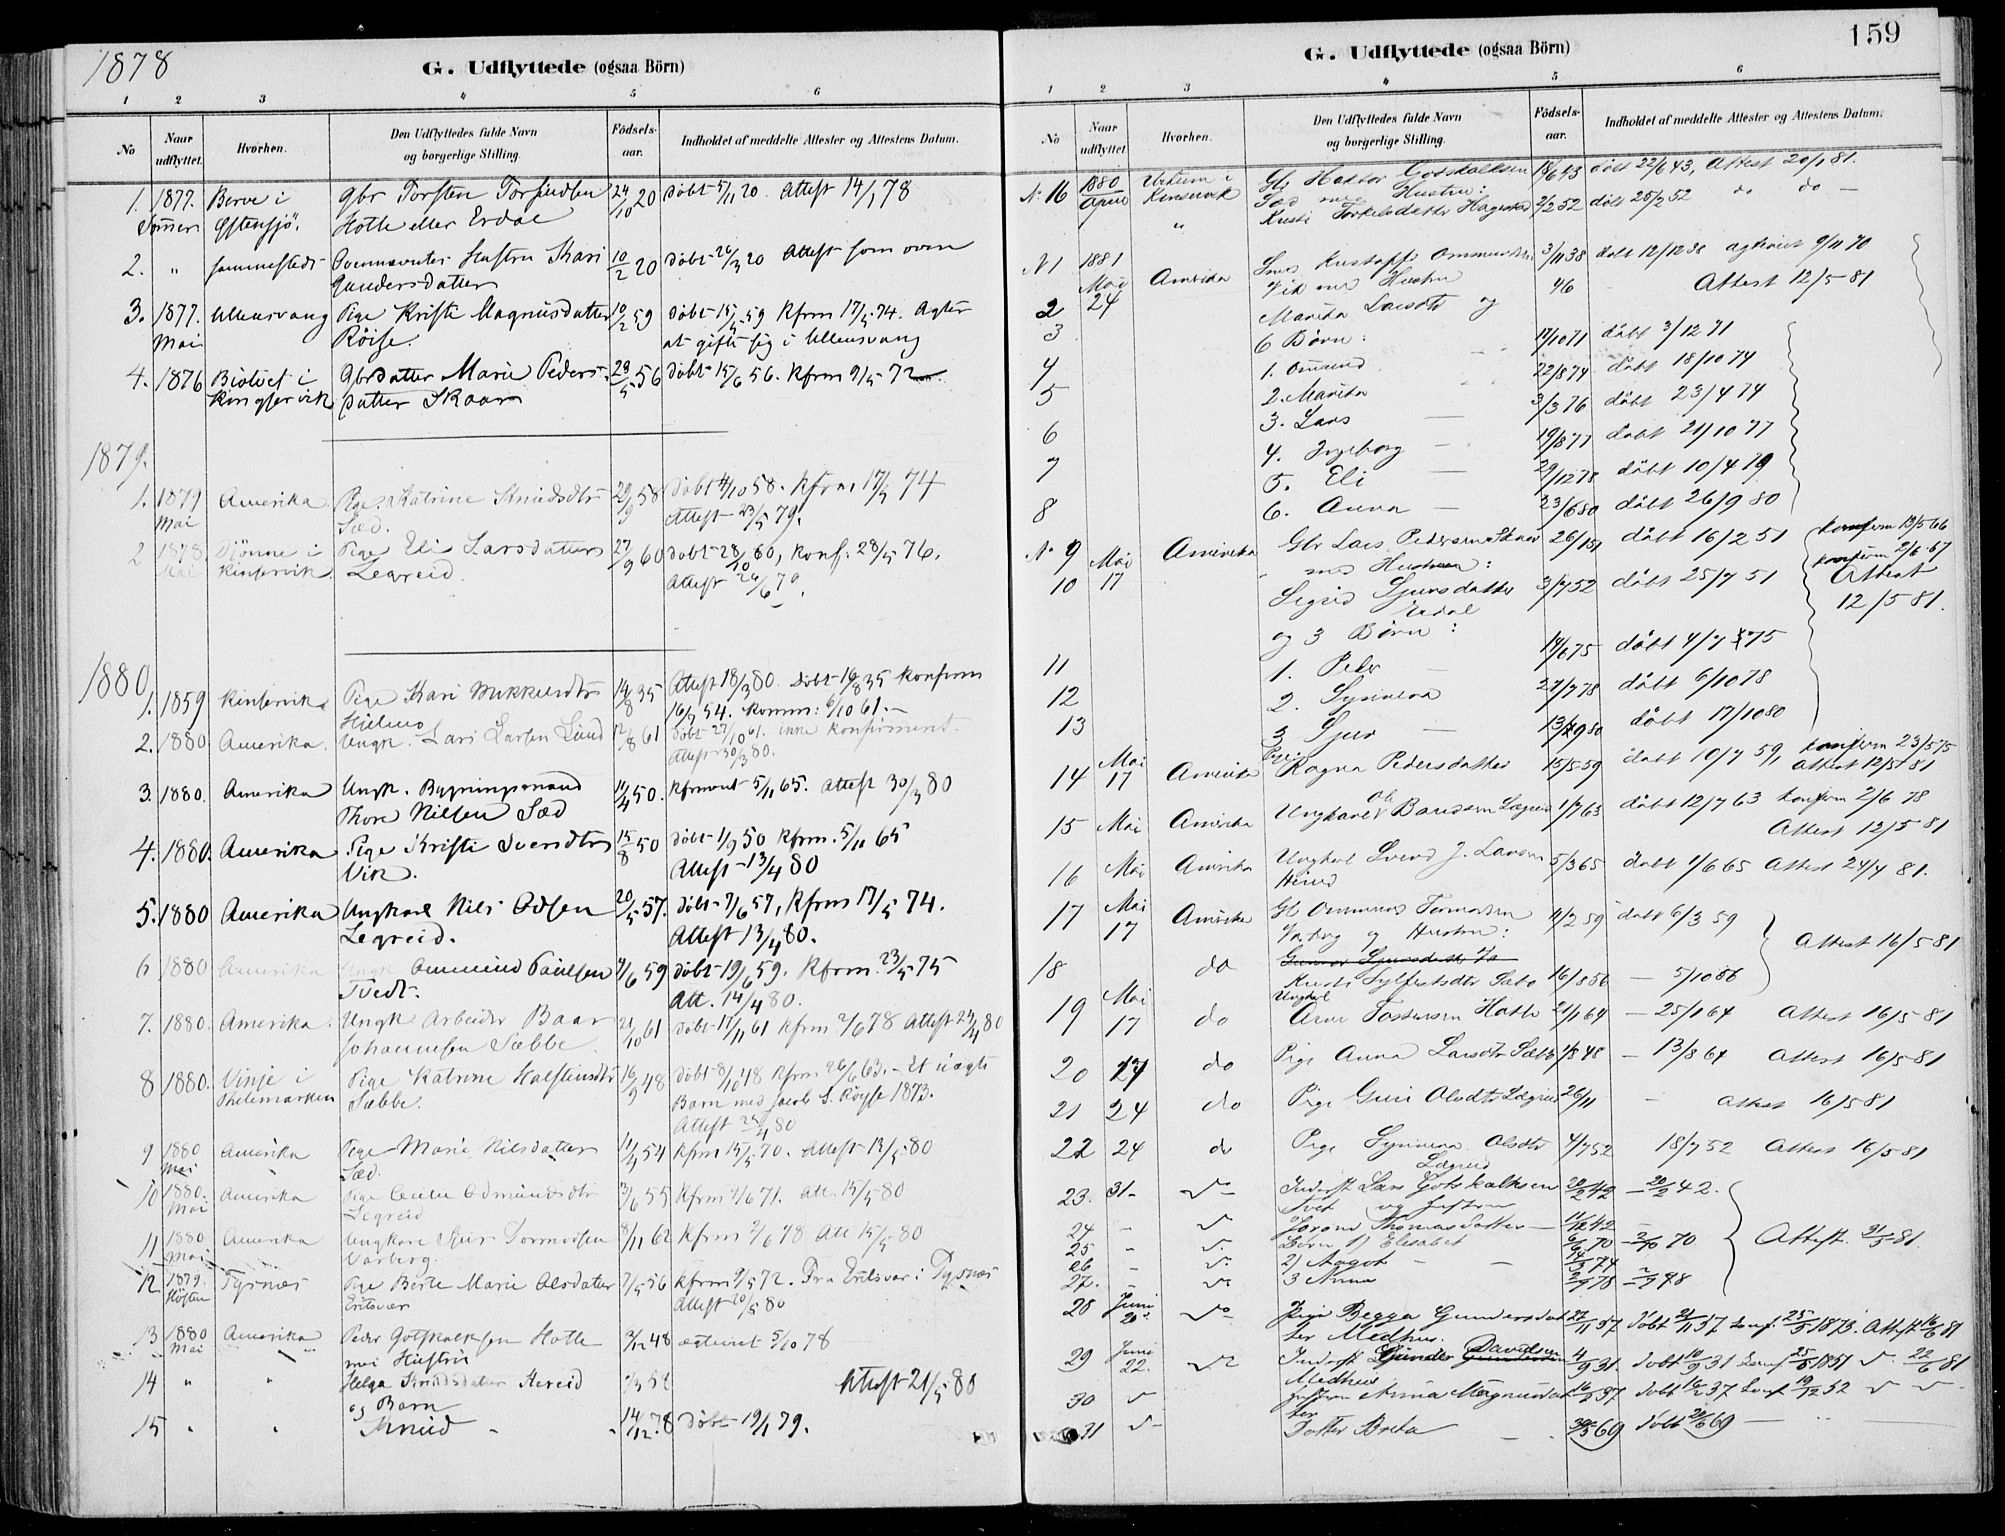 1878
G. Udflyttede (ogsaa Börn)
1 2 3 4 5 6
No Naar udflyttet. Hvorhen. Den Udflyttedes fulde Navn og borgerlige Stilling. Födsels-aar. Indholdet af meddelte Attester og Attestens Datum.
1. 1877. Berve i Gbr Torsten 24/10 20 Döbt 5/11 20. Attest 14/1 78
Sommer Hotle eller Erdal
2. " sammesteds Hustru Kari 10/2 20 Döbt 26/3 20 Attest som oven
Gundersdatter
3. 1877. Ullensvang Pige Kristi Magnusdatter 10/2 59 Döbt 15/5 59 Kfrm 17/5 74. Agter
Mai Röise. at gifte sig i Ullensvang
4. 1876 i Gbrdatter Marie Peders- 23/5 56 Döbt 15/6 56. Kfrm 9/5 72
Kingservik datter Skaar
1879.
1. 1879 Amerika Pige Katrine Knudsdtr 20/9 58 Döbt 4/10 58. Kfrm 17/5 74
Mai Sæd. Attest 23/5 79.
2 1878 Djönne i Pige Eli Larsdatter 27/9 60 Döbt 28/10 60, Konf: 28/5 76.
Mai Kinservik. Legreid. Attest 24/6 79.
1880
1. 1859 Kinservik Pige Kari 14/8 35 Attest 18/3 80. Döbt 16/8 35 Konfirm
Hjelmo 16/7 54. Komm: 6/10 61.
2. 1880 Amerika. Ungk. Lars Larsen Lund 12/8 61 Döbt 27/10 61. ikke Konfirmert.
Attest 30/3 80.
3. 1880. Amerika Ungk. Bygningsmand 14/4 50. Kfrmert 5/11 65. Attest 30/3 80
Thore Nilsen Sæd
4. 1880. Amerika Pige Kristi Svendtr 15/8 50 Döbt 1/9 50 Kfrm. 5/11 65
Vik. Attest 13/4 80
5. 1880 Amerika Ungkarl Nils Odsen 20/5 57. Döbt 7/6 57, Kfrm 17/5 74.
Legreid. Attest 13/4 80.
6 1880 Amerika Ungk Ommund Paulsen 7/6 59 Döbt 19/6 59. Kfrm. 23/5 75
Tvedt. Att. 14/4 80.
7. 1880. Amerika. Ungk Arbeider Baar 21/10 61 Döbt 17/11 61 Kfrm 2/6 78 Attest 24/4 80
Johannesen Sæbbe.
8 1880. Vinje i Pige Katrine Halstensdtr 16/9 48 Döbt 8/10 48 Kfrm 26/6 63. – Et uægte
Thelemarken Sæbbe. Barn med Jacob S. Röyse 1873.
Attest 24/4 80
9 1880 Amerika Pige Marie Nilsdatter 11/4 54 Kfrm 15/5 70. Attest 13/5 80
Mai Sæd.
10 1880. Amerika Pige Cecilie Odmundsdtr 3/6 55 Kfrm 2/6 71. Att. 15/5 80
Mai Legreid
11 1880 Amerika Ungkarl Sjur Tormodsen 8/11 62 Kfrm 2/6 78 Att 15/5 80
Mai Varberg.
12 1879. Tysnæs Pige Berte Marie Olsdatter 7/5 56 Kfrm 9/5 72. Fra Eritsvær i Tysnæs
Hösten Eritsvær Attest 20/5 80
13 1880 Amerika Peder Gotskalksen Hotle 3/12 48 ægteviet 5/10 78
Mai med Hustru
14 " " Helga Knudsdatter Attest 21/5 80
og Barn
15 " " Knud 14/12 78 Döbt 19/1 79.
159
G. Udflyttede (ogsaa Börn)
1 2 3 4 5 6
No Naar udflyttet Hvorhen. Den Udflyttedes fulde Navn og borgerlige Stilling. Födsels-aar. Indholdet af meddelte Attester og Attestens Datum.
No 16 1880 Utkum i Gb Haktor Godskalksen 18/6 43 döbt 22/6 43, Attest 20/1 81.
April Kinservik Sæd med Hustru:
" Kristi Torkelsdatter 2/2 52 döbt 25/2 52 do do –
No 1 1881 Amerika Ommundsen 3/11 38 döbt 12/12 38 ægteviet 9/11 70
Mai Vik med Hustru 46 Attest 12/5 81
2 24 Marita Larsdtr og
3 6 Børn: 17/10 71 döbt 3/12 71
4 1. Omund 22/8 74 döbt 18/10 74
5 2. Marita 3/3 76 döbt 23/4 74
6 3. Lars – 19/8 77 döbt 21/10 77
7 4. Ingeborg – 29/12 78 döbt 10/4 79
8 5. Eli – 23/6 80 döbt 26/9 80
6. Anna –
No 9 Mai Amerika Gbr Lars Pedersen Skaar 26/1 51 döbt 16/2 51 konfirm 13/5 66
10 17 med Hustruen: konfirm 2/6 67
Sigrid Sjursdatter 3/7 52 döbt 25/7 51 Attest
Erdal 12/5 81.
og 3 Børn:
11 1. Peder – 14/6 75 döbt 4/7 75
12 2. Synneva 27/7 78 döbt 6/10 78
13 3 Sjur – 13/9 80 döbt 17/10 80
14 Mai 17 Amerika Pige Ragna Pedersdatter 15/5 59 döbt 10/7 59, konfirm 23/5 75
Attest 12/5 81
15 Mai Amerika Ungkarl Ole Baardsen Lægreid 1/7 63 döbt 12/7 63 konfirm 2/6 78
Attest 12/5 81
16 Mai Amerika Ungkarl Svend J. Larsen 5/3 65 döbt 1/6 65 Attest 24/4 81.
17 Mai Amerika Gb Ommund Tormodsen 11/2 59 döbt 6/3 59
17 Varberg og Hustru: Attest 16/5 81
18 do Kristi Sylfestsdtr Sabo 16/8 56 – 5/10 56
19 Mai 17 do Ungkarl Arne Tostensen Hotle 21/1 64 – 25/1 64 Attest 16/5 81
20 17 do Pige Anna Larsdtr Sæbb 1/8 48 – 13/8 64 Attest 16/5 81
21 24 do Pige Guri Olsdtr Lægreid 26/11 – Attest 16/5 81
22 24 do Pige Synneva Olsdtr 4/7 52 18/7 52 Attest 16/5 81
Lægreid
23. 31 – Inderst Lars Gotskalksen 20/2 42 – 20/2 42.
Tvet og Hustru
24 – Jorand Thomasdatter – 11/12 42 –
25 – Börn 1) Elisabet 6/6 70 – 70 Attest. 31/5 81
26 – 2) Aagot – – 14/3 74
27. – 3 Anna 2/9 78 –
28 Juni 20 Pige Begga Gundersdat 22/11 57 Döbt 21/11 57 konf. 25/5 1873. Attest 16/6 81
ter Medhus.
29 Juni 22. Inderst Gunder Davidsen 4/9 31. Döbt 10/9 31 konf 25/5 1851 22/6 81
Medhus
30 Hustru Anna Magnusdat 16/2 37 Döbt 16/2 37 konf. 19/12 52
ter
31 Datter Brita – 30/5 69 Döbt 20/6 69 –